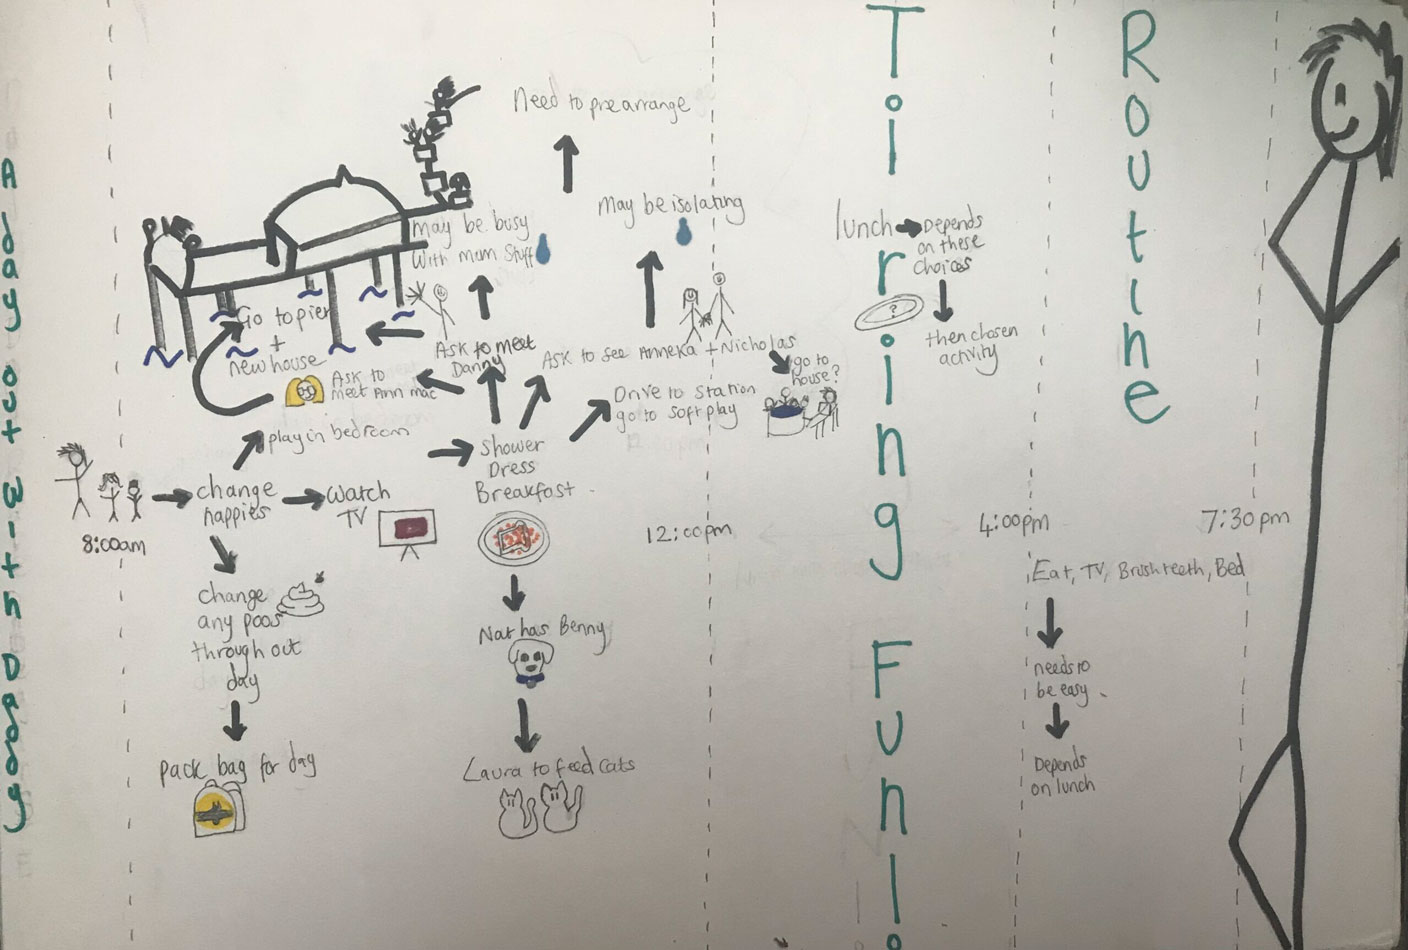 A day out with Daddy
Tiring Fun!
Routine
Need to prearrange
May be busy
With mum Stuff
May be isolating
Go to pier
+
new house
Ask to meet
Danny
Ask to see Anneka + Nicholas
go to
house?
Ask to
meet Ann mac
Drive to station
go to soft play
play in bedroom
Shower
Dress
Breakfast
change
nappies
Watch
TV
8:00am
12:00pm
4:00pm
7:30pm
lunch
Depends
on these
Choices
?
then chosen
activity
change
any poos
through out
day
pack bag for day
Nat has Benny
Laura to feed cats
Eat, TV, Brush teeth, Bed
needs to
be easy.
Depends
on lunch